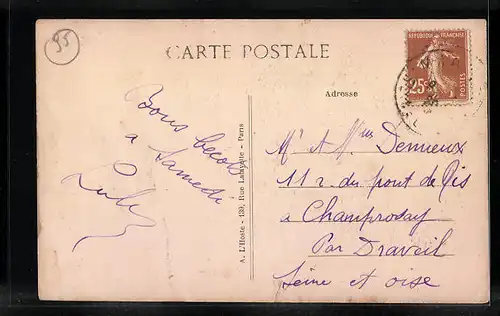 95
CARTE POSTALE
RÉPUBLIQUE FRANÇAISE
25c
POSTES
Adresse
Bons becots
a Samedi
A. L'Hoste - 139, Rue Lafayette - Paris
Mr et Mme Demieux
11 r. du pont de Ris
a Champrosay
Par Draveil
Seine et oise